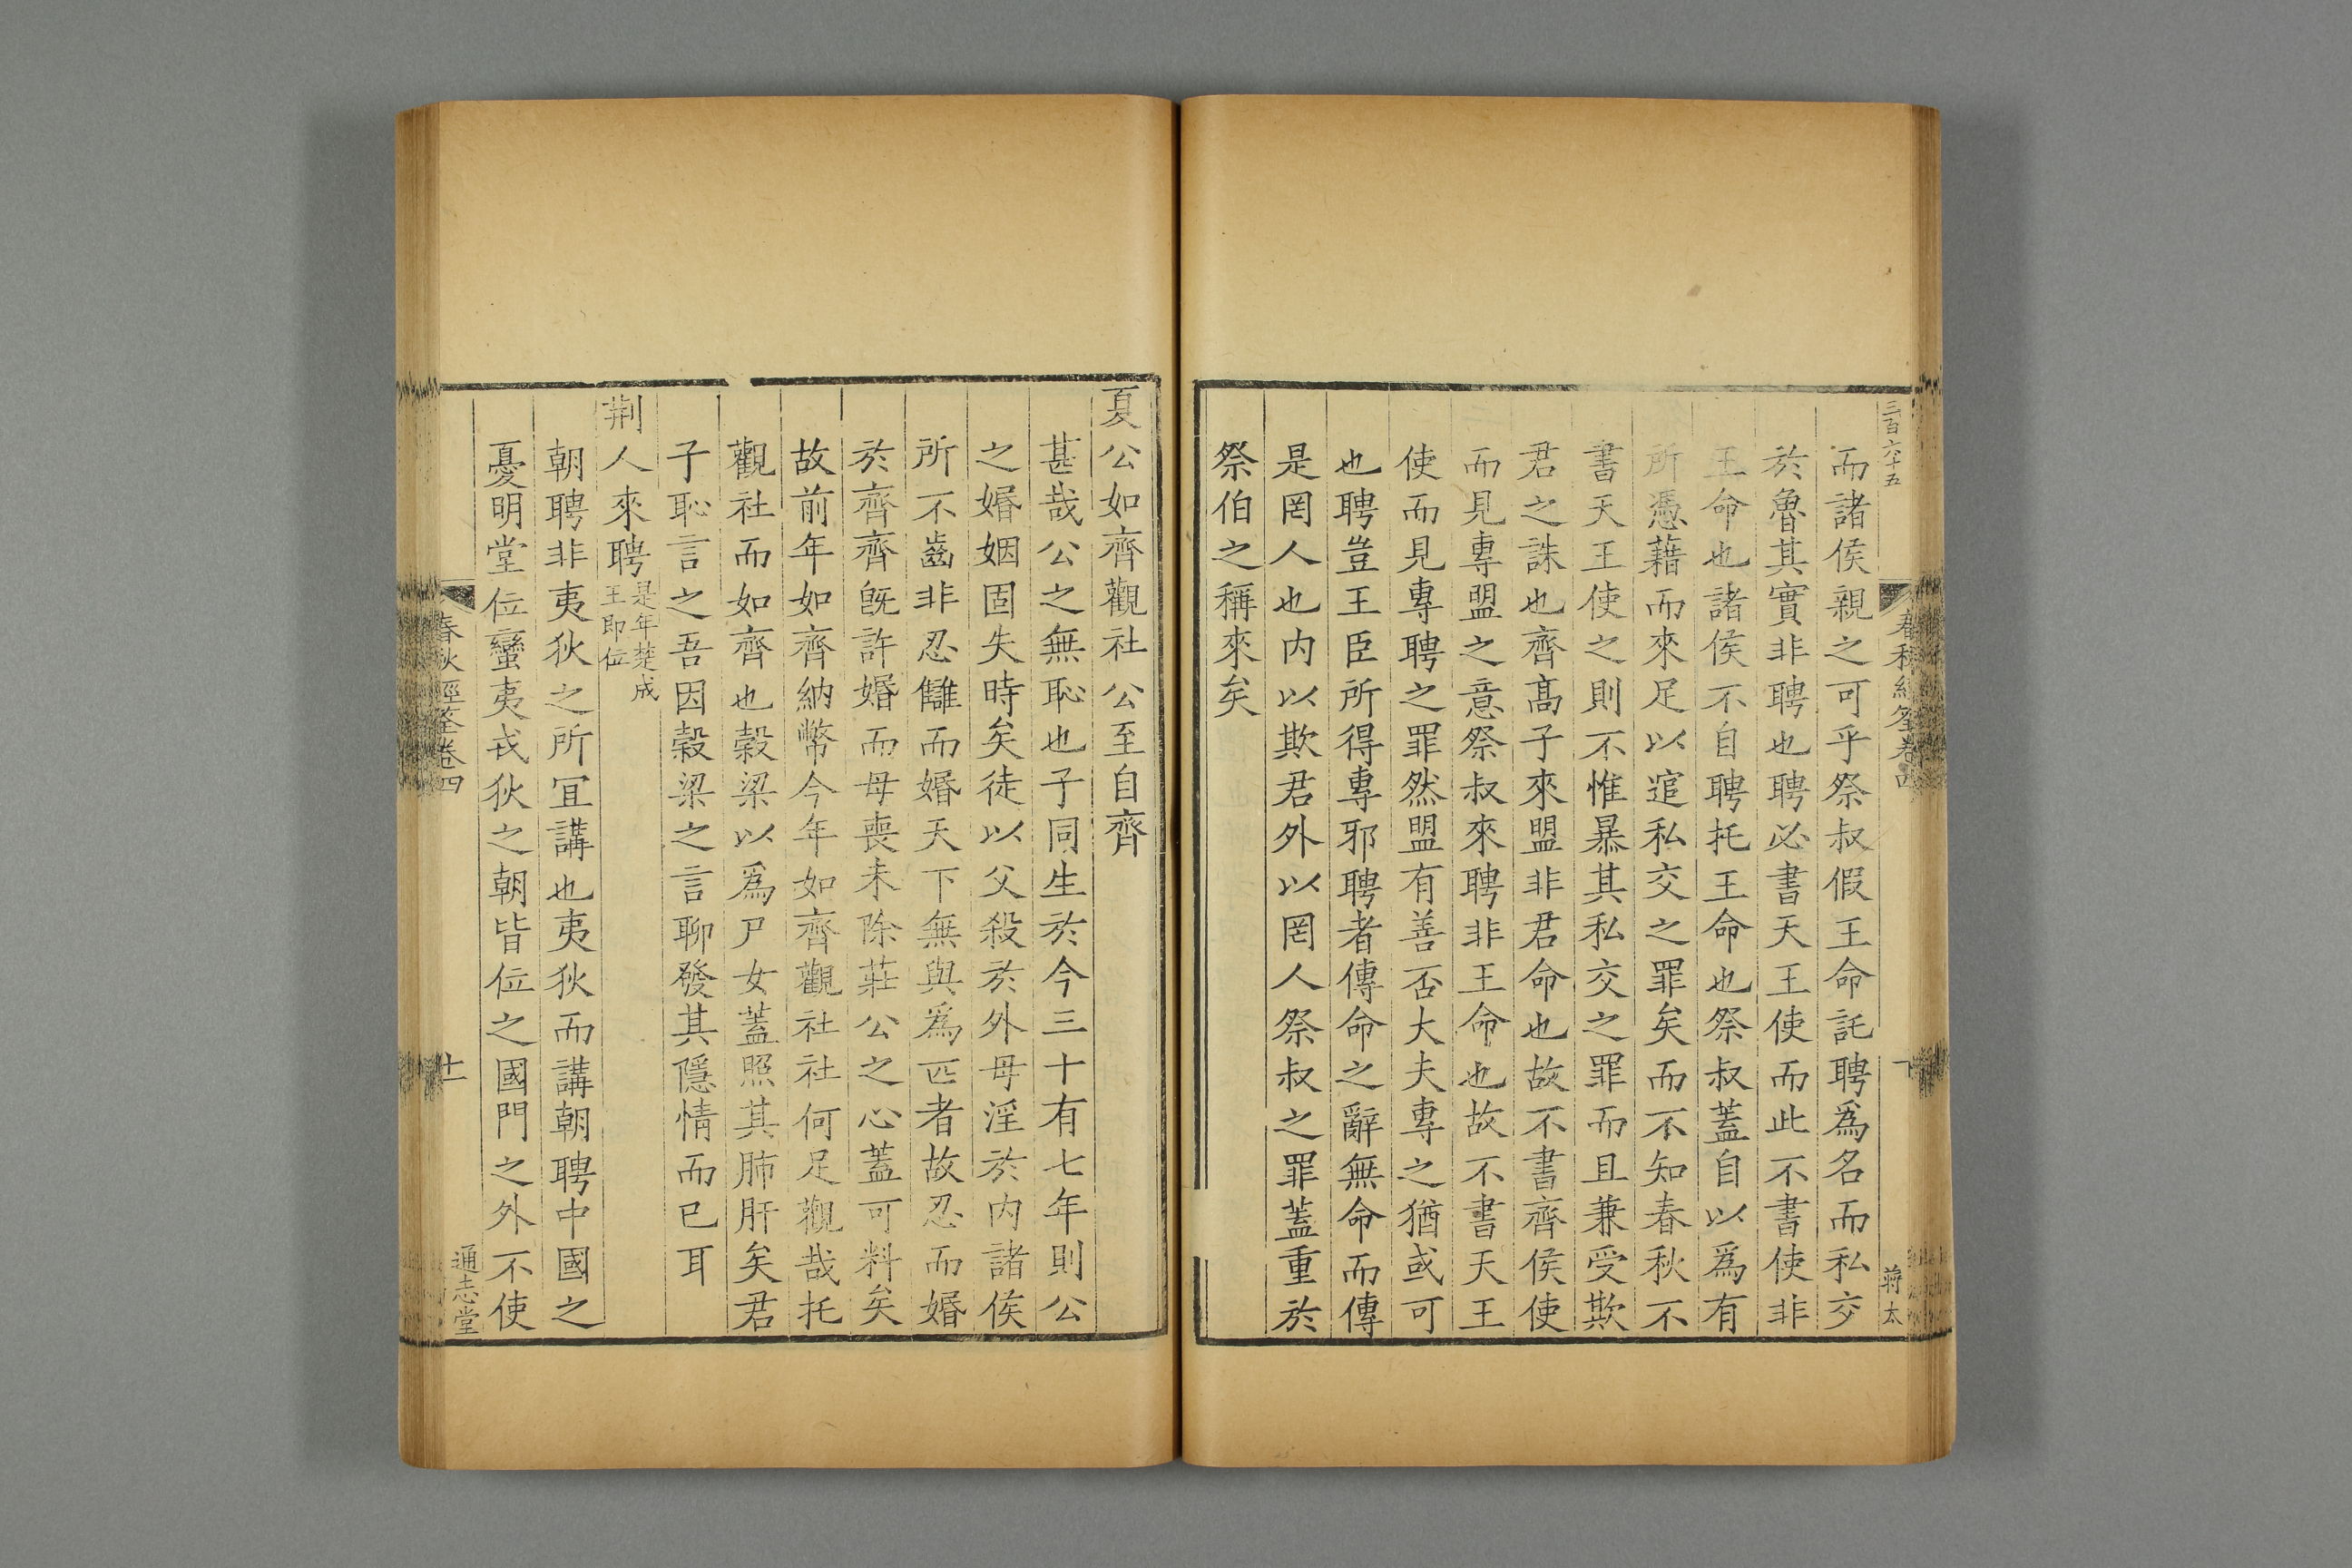 三百六十五
春秋經筌卷四
十
蔣太
而諸侯親之可乎祭叔假王命託聘爲名而私交
於魯其實非聘也聘必書天王使而此不書使非
王命也諸侯不自聘托王命也祭叔蓋自以爲有
所憑藉而來足以逭私交之罪矣而不知春秋不
書天王使之則不惟暴其私交之罪而且兼受欺
君之誅也齊髙子來盟非君命也故不書齊侯使
而見專盟之意祭叔來聘非王命也故不書天王
使而見專聘之罪然盟有善否大夫專之猶或可
也聘豈王臣所得專邪聘者傳命之辭無命而傳
是罔人也内以欺君外以罔人祭叔之罪蓋重於
祭伯之稱來矣
夏公如齊觀社公至自齊
甚哉公之無恥也子同生於今三十有七年則公
之婚姻固失時矣徒以父殺於外母淫於内諸侯
所不齒非忍讎而婚天下無與爲匹者故忍而婚
於齊齊旣許婚而母喪未除莊公之心蓋可料矣
故前年如齊納幣今年如齊觀社社何足觀哉托
觀社而如齊也穀梁以爲尸女蓋照其肺肝矣君
子恥言之吾因穀梁之言聊發其隱情而已耳
荆人來聘是年楚成
王即位
朝聘非夷狄之所冝講也夷狄而講朝聘中國之
憂明堂位蠻夷戎狄之朝皆位之國門之外不使
春秋經筌卷四
十一
通志堂